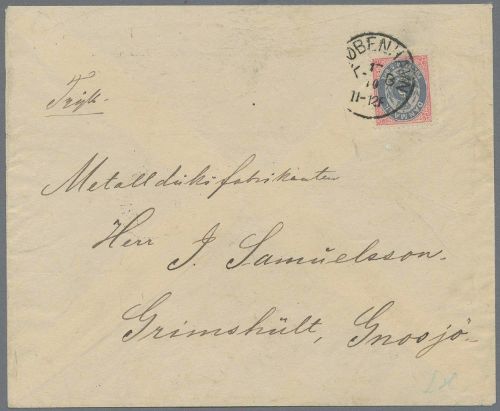 KØBENHAVN
11-12F
Tryk.
Metallduksfabrikanten
Herr J. Samuelsson.
Grimshült, Gnosjö